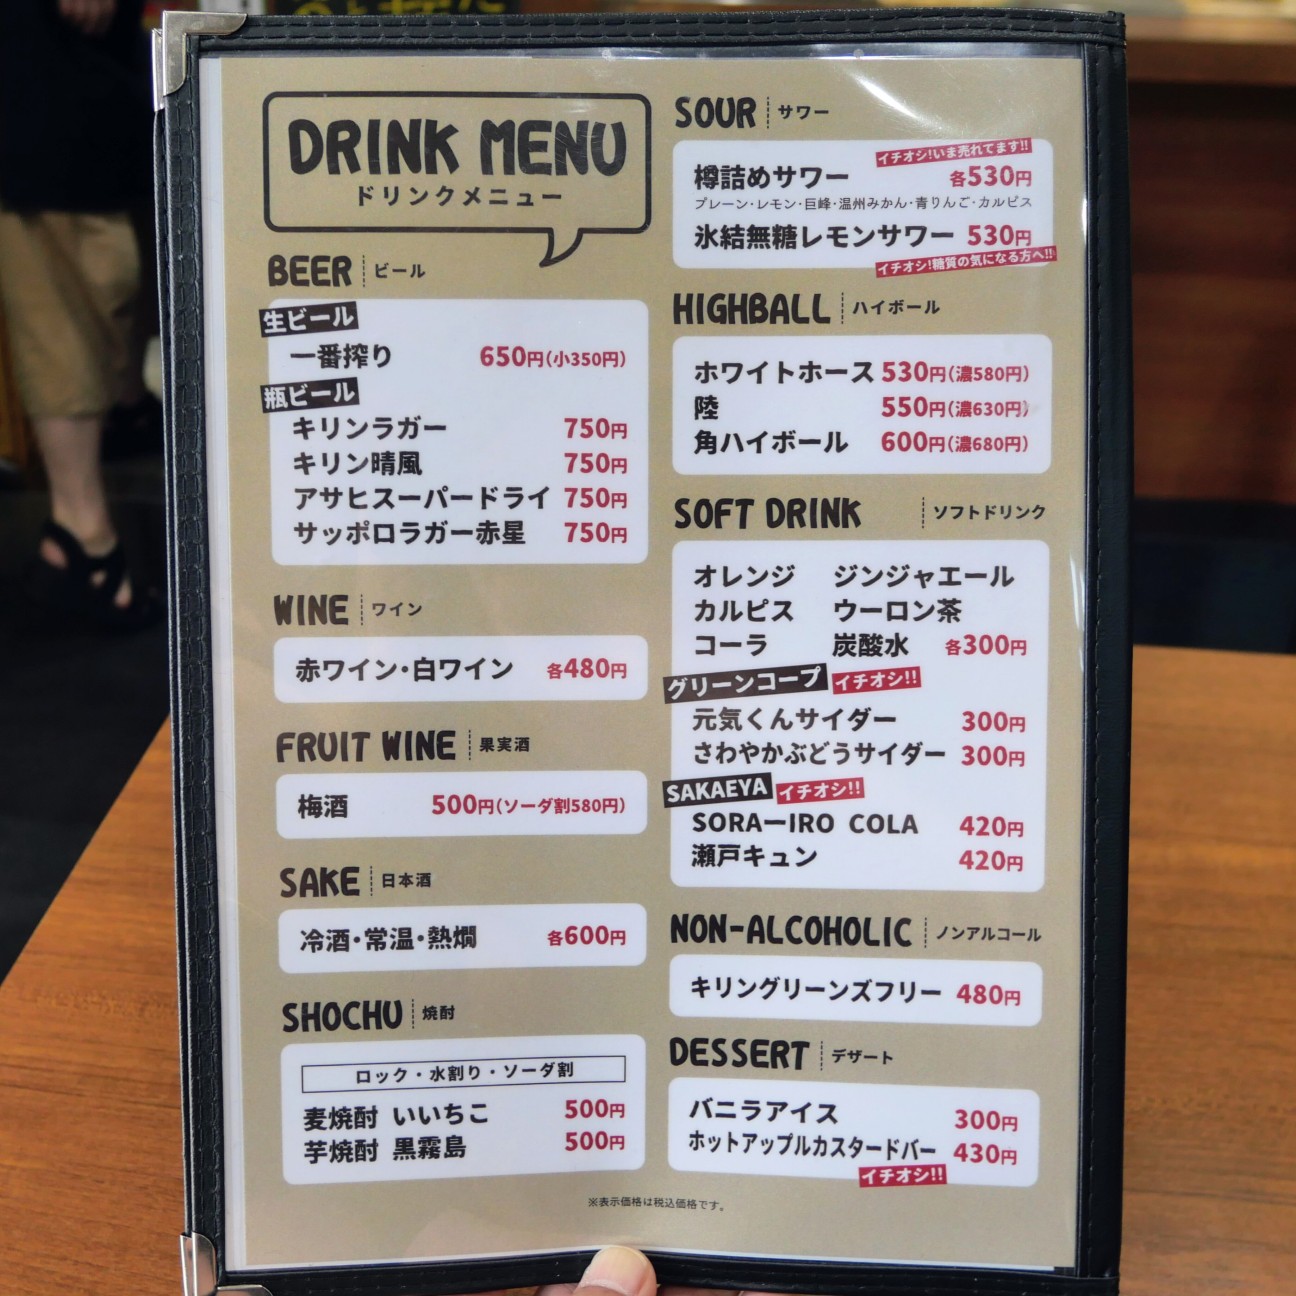 DRINK MENU
ドリンクメニュー
BEER ビール
生ビール
一番搾り 650円(小350円)
瓶ビール
キリンラガー 750円
キリン晴風 750円
アサヒスーパードライ 750円
サッポロラガー赤星 750円
WINE ワイン
赤ワイン・白ワイン 各480円
FRUIT WINE 果実酒
梅酒 500円(ソーダ割580円)
SAKE 日本酒
冷酒・常温・熱燗 各600円
SHOCHU 焼酎
ロック・水割り・ソーダ割
麦焼酎 いいちこ 500円
芋焼酎 黒霧島 500円
SOUR サワー
イチオシ!いま売れてます!!
樽詰めサワー 各530円
プレーン・レモン・巨峰・温州みかん・青りんご・カルピス
氷結無糖レモンサワー 530円
イチオシ!糖質の気になる方へ!!
HIGHBALL ハイボール
ホワイトホース 530円(濃580円)
陸 550円(濃630円)
角ハイボール 600円(濃680円)
SOFT DRINK ソフトドリンク
オレンジ ジンジャエール
カルピス ウーロン茶
コーラ 炭酸水 各300円
グリーンコープ イチオシ!!
元気くんサイダー 300円
さわやかぶどうサイダー 300円
SAKAEYA イチオシ!!
SORAーIRO COLA 420円
瀬戸キュン 420円
NON-ALCOHOLIC ノンアルコール
キリングリーンズフリー 480円
DESSERT デザート
バニラアイス 300円
ホットアップルカスタードバー 430円
イチオシ!!
※表示価格は税込価格です。